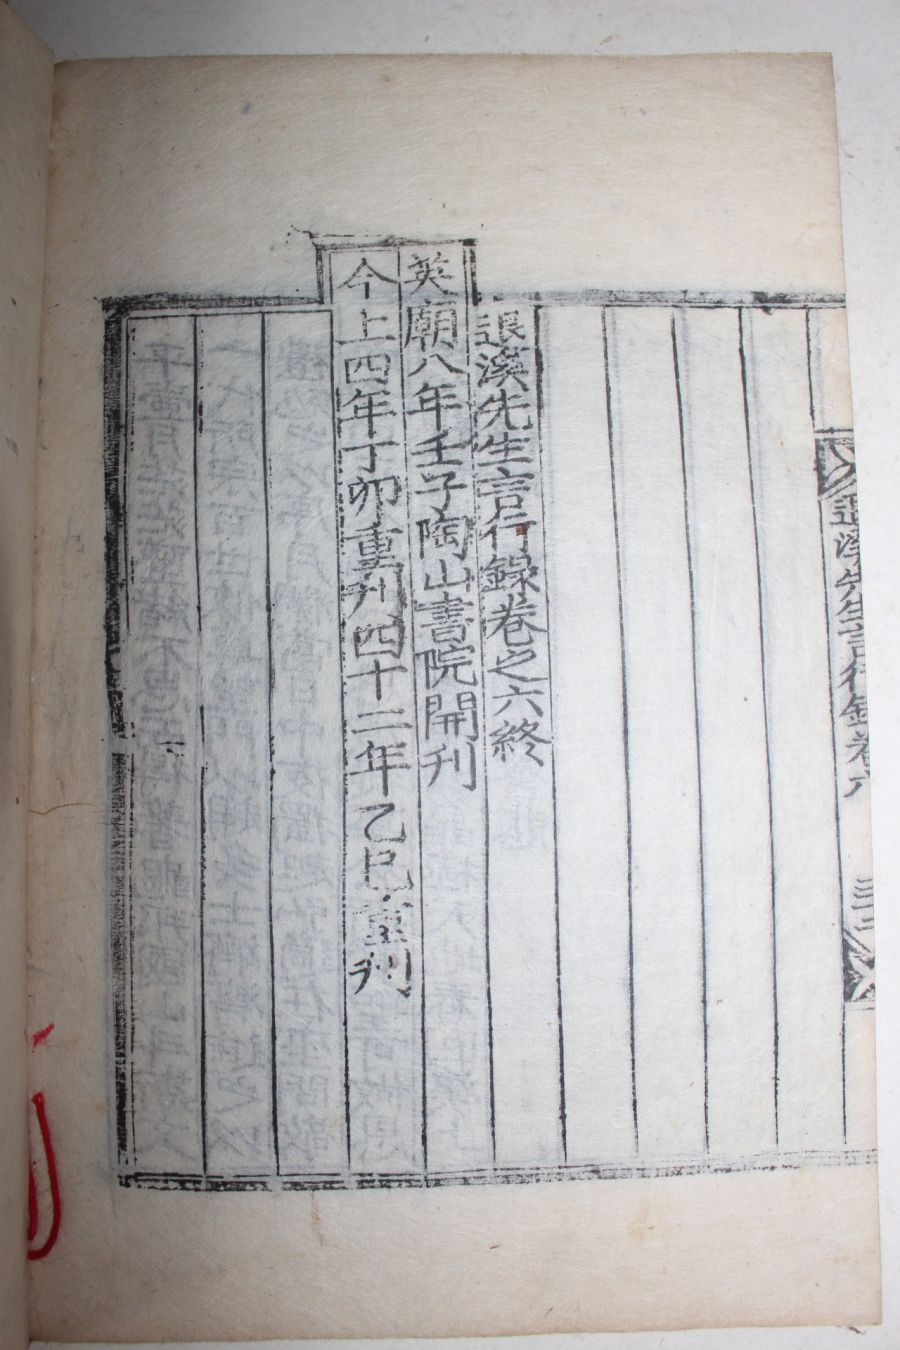 退溪先生言行錄卷六
三十二
退溪先生言行錄卷之六終
英廟八年壬子陶山書院開刊
今上四年丁卯重刊四十二年乙巳重刊